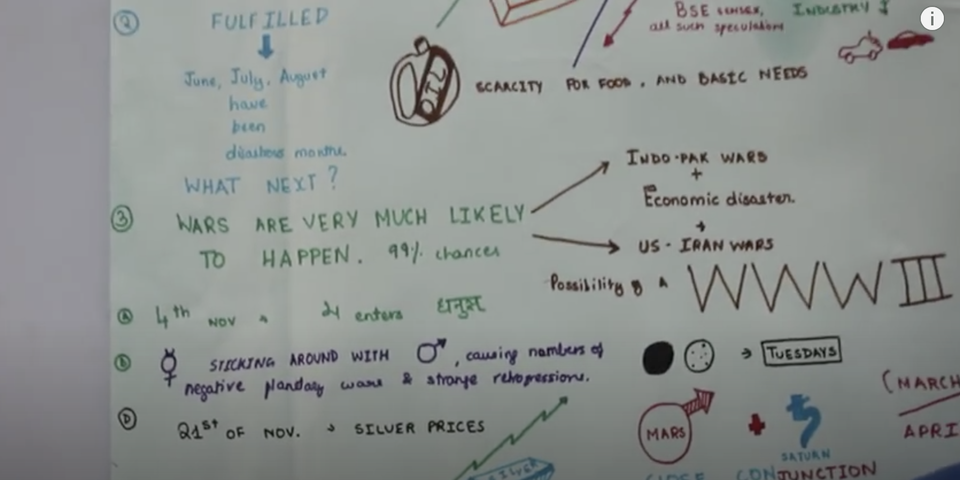 ② FULFILLED
June, July, August
have
been
disastous months.
WHAT NEXT?
BSE SENSEX, INDUSTRY
all such speculations
OIL
SCARCITY FOR FOOD, AND BASIC NEEDS
③ WARS ARE VERY MUCH LIKELY
TO HAPPEN. 99% chances
INDO-PAK WARS
+
Economic disaster.
US-IRAN WARS
Possibility of A WWW III
Ⓐ 4th NOV → ♃ enters धनुष
Ⓑ ☿ STICKING AROUND WITH ♂, causing numbers of
negative planetary wars & strange
→ TUESDAYS
Ⓓ 21st OF NOV. → SILVER PRICES
SILVER
MARS + SATURN
CONJUNCTION
(MARCH
APRI